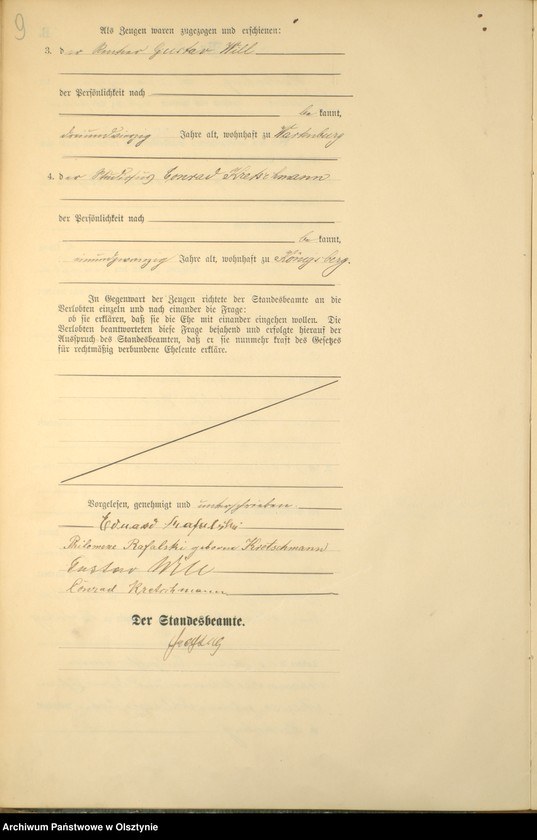 9
Als Zeugen waren zugezogen und erschienen:
3. der Rentier Gustav Will
der Persönlichkeit nach
be kannt,
Jahre alt, wohnhaft zu Wartenburg
4. der Studiosus Conrad Kretschmann
der Persönlichkeit nach
be kannt,
einundzwanzig Jahre alt, wohnhaft zu Königsberg.
In Gegenwart der Zeugen richtete der Standesbeamte an die
Verlobten einzeln und nach einander die Frage:
ob sie erklären, daß sie die Ehe mit einander eingehen wollen. Die
Verlobten beantworteten diese Frage bejahend und erfolgte hierauf der
Ausspruch des Standesbeamten, daß er sie nunmehr kraft des Gesetzes
für rechtmäßig verbundene Eheleute erkläre.
Vorgelesen, genehmigt und unterschrieben
Eduard Rafalski
Philomene Rafalski geborne Kretschmann
Gustav Will
Conrad Kretschmann
Der Standesbeamte.
Archiwum Państwowe w Olsztynie